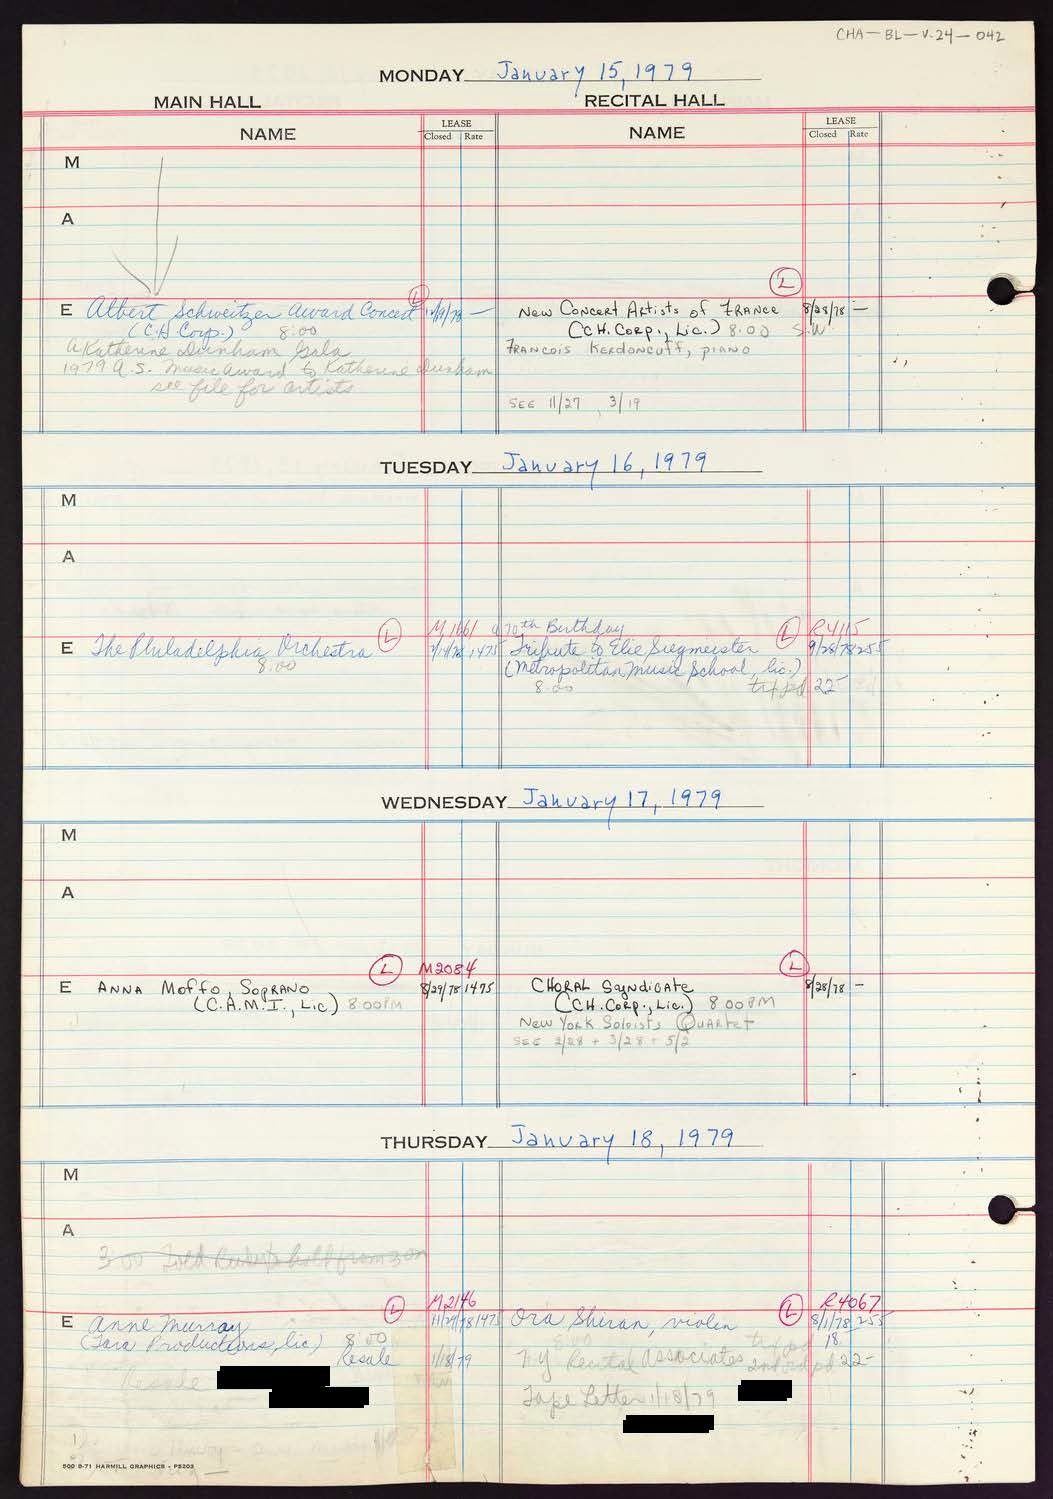 CHA-BL-V.24-042
MONDAY January 15, 1979
MAIN HALL
RECITAL HALL
NAME
LEASE
Closed Rate
NAME
LEASE
Closed Rate
M
A
L
L
E Albert Schweitzer Award Concert 12/9/78 —
(C.H Corp.) 8:00
A Katherine Dunham Gala
1979 A.S. Music Award to Katherine Dunham
see file for artists
New Concert Artists of France 8/28/78 —
(C.H. Corp., Lic.) 8:00 S.W.
Francois Kerdoncuff, piano
SEE 11/27, 3/19
TUESDAY January 16, 1979
M
A
L M1661
E The Philadelphia Orchestra 1475
8:00
a 70th Birthday L R4115
Tribute to Elie Siegmeister 9/28/78 255
(Metropolitan Music School, lic.)
8:00 22-
WEDNESDAY January 17, 1979
M
A
L M2084
E Anna Moffo, Soprano 8/29/78 1475
(C.A.M.I., Lic.) 8:00PM
L
Choral Syndicate 8/28/78 —
(C.H. Corp., Lic.) 8:00PM
New York Soloists Quartet
SEE 2/28 + 3/28 + 5/2
THURSDAY January 18, 1979
M
A
3:00 hold from 3 on
L M2146
E Anne Murray 11/29/78 1475
(Tara Productions, lic) 8:00
Resale 1/18/79
Resale
L R4067
Ora Shiran, violin 8/1/78 255
8:00 18
N.Y Recital Associates 2nd pd 22-
Tape Letter 1/18/79
500 8-71 HARMILL GRAPHICS - P5203